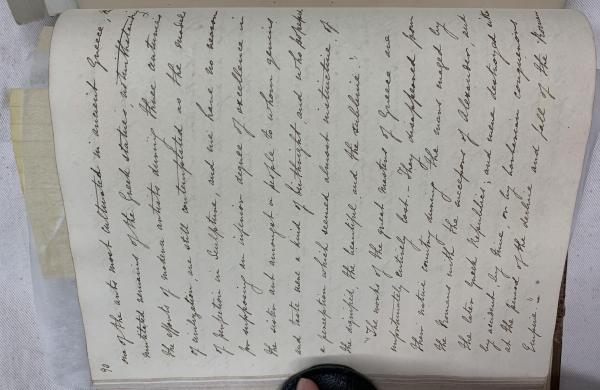 90
one of the arts most cultivated in ancient Greece,
mutilated remains of the Greek statues, notwithstanding
the efforts of modern artists during three centuries
of civilization are still contemplated as the models
of perfection in Sculpture, and we have no reason
for supposing an inferior degree of excellence in
the sister art amongst a people to whom genius
and taste were a kind of birthright and who possessed
a perception which seemed almost instinctive of
the dignified, the beautiful and the sublime."
"The works of the great masters of Greece are
unfortunately entirely lost. - They disappeared from
their native country during the wars waged by
the Romans with the successors of Alexander, and
the later Greek Republics; and were destroyed either
by accident, by time, or by barbarian conquerors
at the period of the decline and fall of the Roman
Empire" -